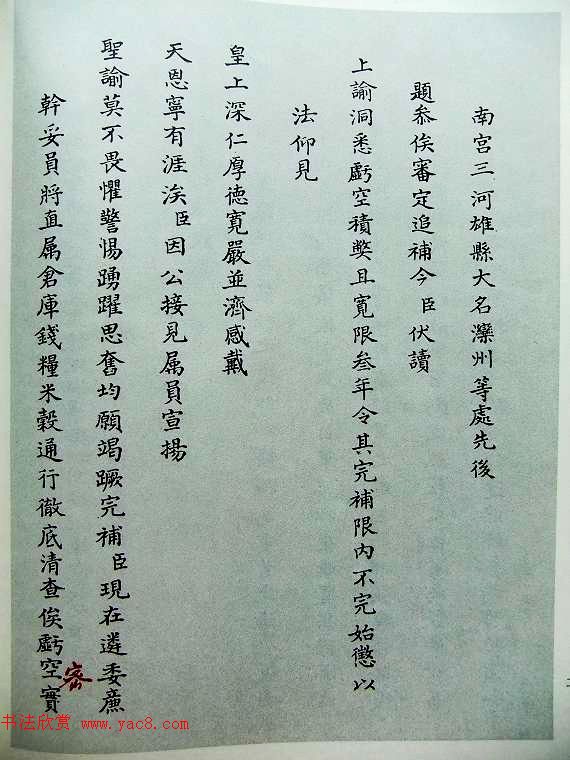 南宮三河雄縣大名灤州等處先後
題叅俟審定追補今臣伏讀
上諭洞悉虧空積獘且寬限叁年令其完補限內不完始懲以
法仰見
皇上深仁厚德寬嚴並濟感戴
天恩寧有涯涘臣因公接見属員宣揚
聖諭莫不畏懼警惕踴躍思奮均願竭蹶完補臣現在遴委廉
幹妥員將直属倉庫錢糧米穀通行徹底清查俟虧空實
密
书法欣赏 www.yac8.com